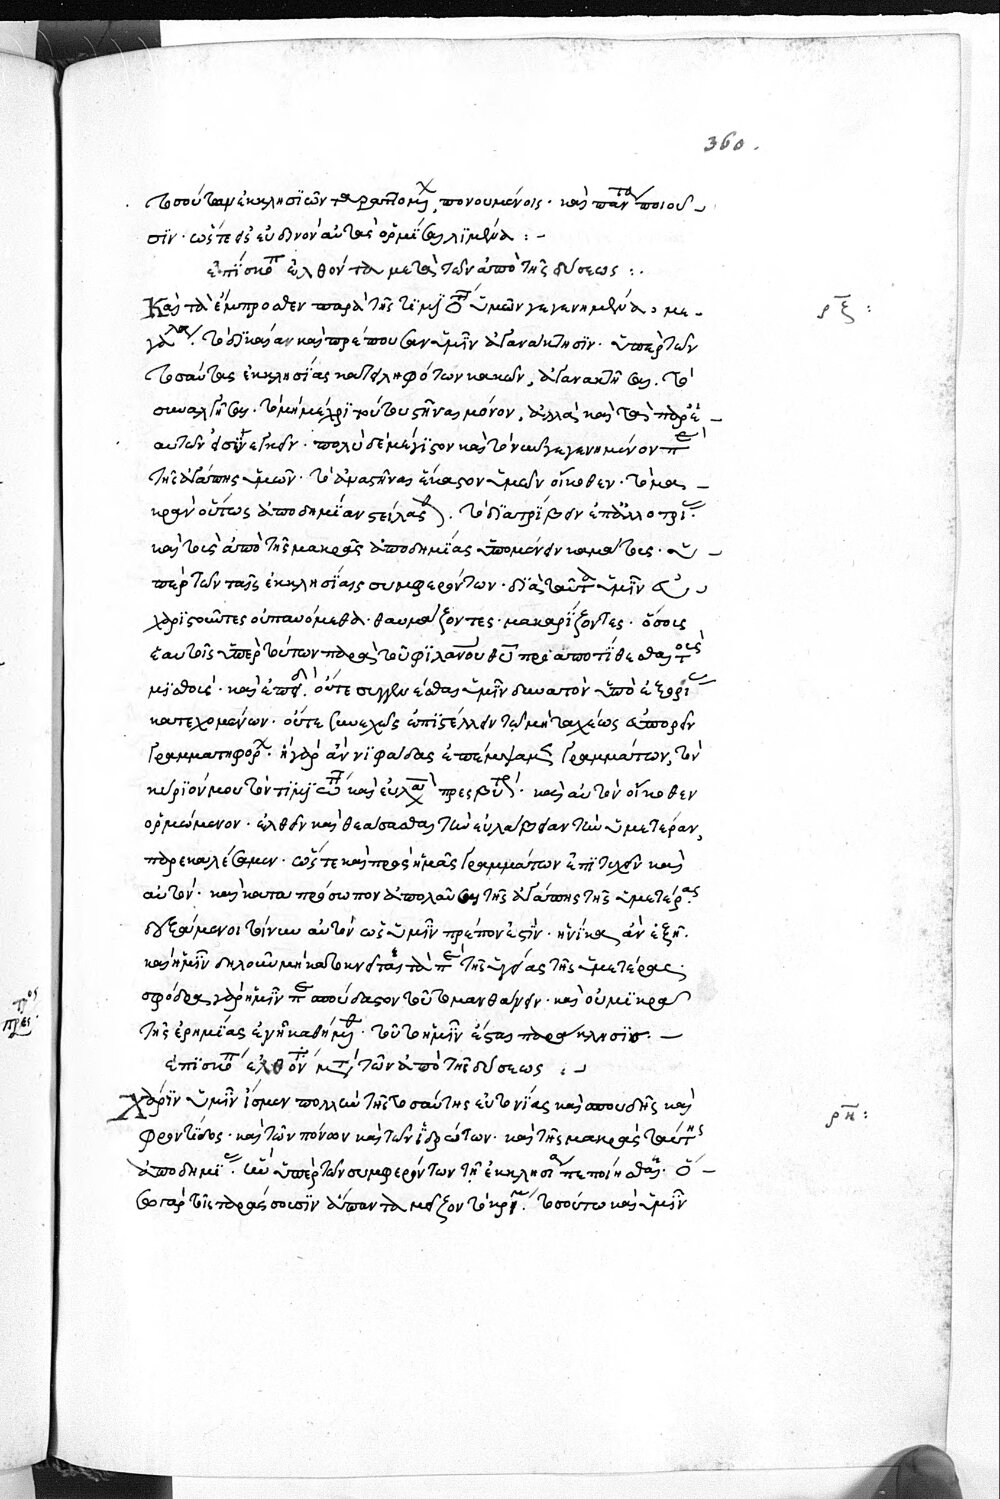 360.
τοσούτων ἐκκλησϊῶν ταραττομέναις, πονουμένοις· καὶ πάντα ποιοῦ-
σϊν· ὥστε εἰς εὐδινὸν αὐτὰς ὁρμῖσαι λϊμένα :-
ἐπϊσκόποις ἐλθόντα μετὰ τῶν ἀπὸ τῆς δύσεως :.
Καὶ τὰ ἔμπροσθεν παρὰ τῆς τϊμϊότητος ὑμῶν γεγενημένα, με-
γάλα. τὸ δϊκαίαν καὶ πρέπουσαν ὑμῖν ἀγανάκτησϊν. ὑπὲρ τῶν
τοσαύτας ἐκκλησίας κατειληφότων κακῶν, ἀγανακτῆσαι. τὸ
συναλγῆσαι. τὸ μὴ μέχρϊ τούτου στῆναι μόνον, ἀλλὰ καὶ τὰ παρ' ἑ-
αυτῶν εἰσενεγκεῖν. πολὺ δὲ μέγϊστον καὶ τὸ νῦν γεγενημένον παρὰ
τῆς ἀγάπης ὑμῶν. τὸ ἀναστῆναι ἕκαστον ὑμῶν οἴκοθεν. τὸ μα-
κρὰν οὕτως ἀποδημίαν στείλασθαι. τὸ δϊατρίβειν ἐπ' ἀλλοτρίας.
καὶ τοῖς ἀπὸ τῆς μακρᾶς ἀποδημίας ὑπομένειν καμάτοις. ὑ-
πὲρ τῶν ταῖς ἐκκλησίαις συμφερόντων. δϊὰ ταῦτα ὑμῖν εὐ-
χαρϊστοῦντες οὐ παυόμεθα. θαυμάζοντες. μακαρίζοντες. ὅσοις
ἑαυτοῖς ὑπὲρ τούτων παρὰ τοῦ φϊλανθρώπου θεοῦ προαποτίθεσθαι τοὺς
μϊσθούς. καὶ ἐπειδὴ. οὔτε συγγενέσθαι ὑμῖν δυνατὸν ὑπὸ ἐξορίας
κατεχομένων. οὔτε συνεχῶς ἐπϊστέλλειν τῷ μὴ ταχέως εὐπορεῖν
γραμματηφόρων. ἢ γὰρ ἂν νϊφάδας ἐπέμψαμεν γραμμάτων, τὸν
κύρϊόν μου τὸν τϊμϊώτατον καὶ εὐλαβέστατον πρεσβύτερον. καὶ αὐτὸν οἴκοθεν
ὁρμώμενον. ἐλθεῖν καὶ θεάσασθαι τὴν εὐλάβειαν τὴν ὑμετέραν,
παρεκαλέσαμεν. ὥστε καὶ πρὸς ἡμᾶς γραμμάτων ἐπϊτυχεῖν καὶ
αὐτόν. καὶ κατὰ πρόσωπον ἀπολαῦσαι τῆς ἀγάπης τῆς ὑμετέρας
δεξάμενοι τοίνυν αὐτὸν ὡς ὑμῖν πρέπον ἐστίν. ἡνίκα ἂν ἐξῇ.
καὶ ἡμῖν δηλοῦν μὴ κατοκνεῖτε τὰ περὶ τῆς ὑγείας τῆς ὑμετέρας.
σφόδρα γὰρ ἡμῖν περισπούδαστον τοῦτο μανθάνειν. καὶ οὐ μϊκρὰ
τῆς ἐρημίας ἐν ᾗ καθήμεθα. τοῦτο ἡμῖν ἔσται παράκλησϊς. —
ἐπϊσκόποις ἐλθοῦσι μετὰ τῶν ἀπὸ τῆς δύσεως :.
Χάρϊν ὑμῖν ἴσμεν πολλὴν τῆς τοσαύτης εὐτονίας καὶ σπουδῆς καὶ
φροντίδος. καὶ τῶν πόνων καὶ τῶν ἱδρώτων. καὶ τῆς μακρᾶς ταύτης
ἀποδημίας. ἣν ὑπὲρ τῶν συμφερόντων τῇ ἐκκλησίᾳ πεποίησθε. ὅ-
σῳ γὰρ τοῖς παροῦσϊν ἅπαντα μεῖζον τὸ κρῖμα. τοσούτῳ καὶ ὑμῖν
ρξ :
ρη :